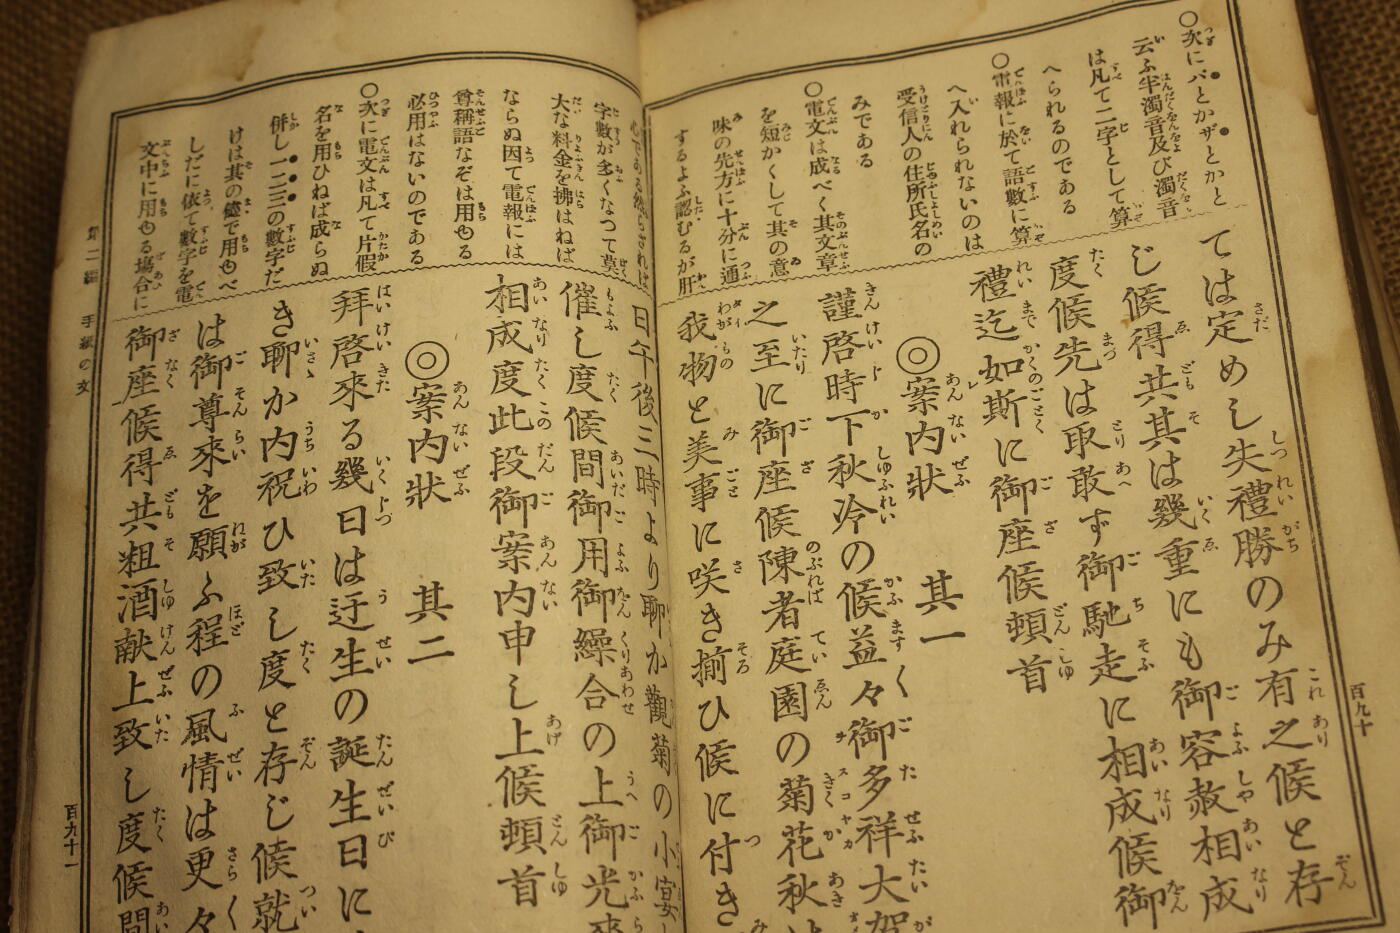 ○次にパとかザとかと
云ふ半濁音及び濁音
は凡て二字として算
へられるのである
○電報に於て語數に算
へ入れられないのは
受信人の住所氏名の
みである
○電文は成べく其文章
を短かくして其の意
味の先方に十分に通
するよふ認むるが肝
ては定めし失禮勝のみ有之候と存
じ候得共其は幾重にも御容赦相成
度候先は取敢ず御馳走に相成候御
禮迄如斯に御座候頓首
◎案内狀 其一
謹啓時下秋冷の候益々御多祥大賀
之至に御座候陳者庭園の菊花秋
我物と美事に咲き揃ひ候に付き
百九十
字數が多くなつて莫
大な料金を拂はねば
ならぬ因て電報には
尊稱語なぞは用ゐる
必用はないのである
○次に電文は凡て片假
名を用ひねば成らぬ
併し一二三の數字だ
けは其の儘で用ゐべ
しだに依て數字を電
文中に用ゐる塲合に
日午後三時より聊か觀菊の小宴
催し度候間御用御繰合の上御光來
相成度此段御案内申し上候頓首
◎案内狀 其二
拜啓來る幾日は迂生の誕生日に
き聊か内祝ひ致し度と存じ候就
は御尊來を願ふ程の風情は更々
御座候得共粗酒献上致し度候間
第二編 手紙の文
百九十一